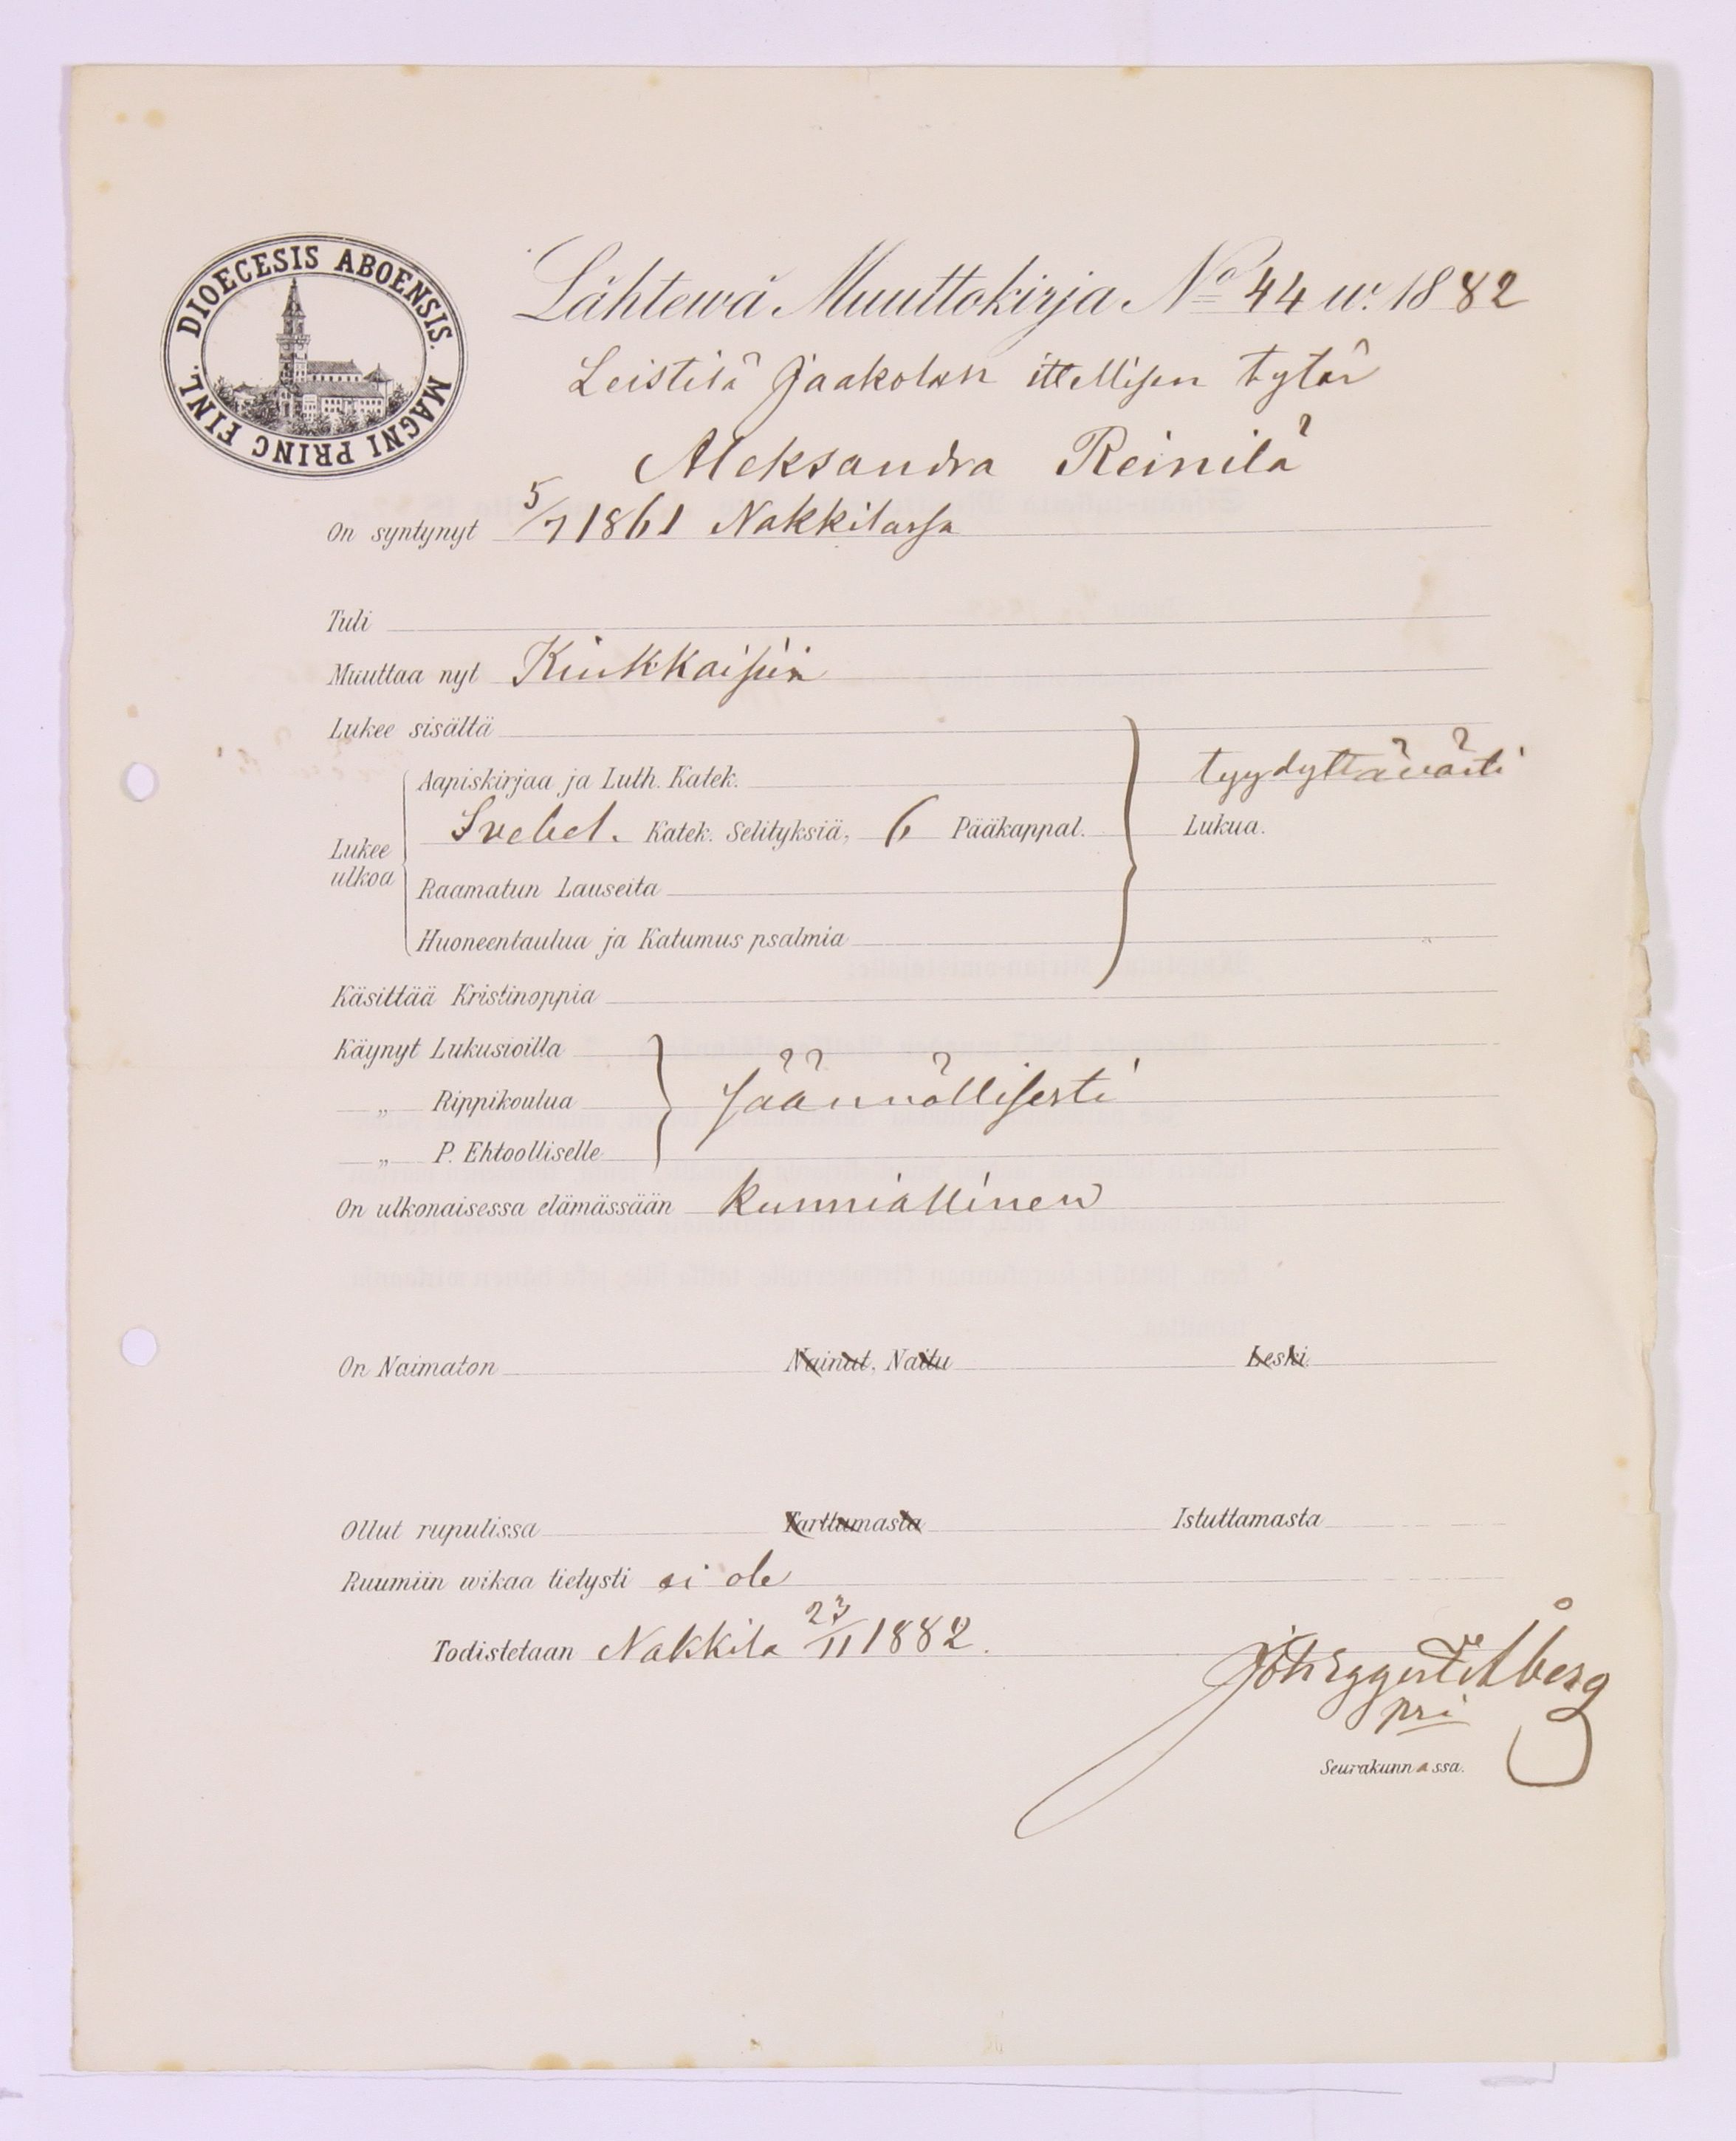 DIOECESIS ABOENSIS. MAGNI PRINC FINL.
Lähtewä Muuttokirja No 44 w. 1882
Leistilä Jaakolan ittellisen tytär
Aleksandra Reinilä
On syntynyt 5/7 1861 Nakkilassa
Tuli
Muuttaa nyt Kiukkaisiin
Lukee sisältä
Aapiskirjaa ja Luth. Katek. tyydyttävästi
Lukee ulkoa
Svebel. Katek. Selityksiä, 6 Pääkappal. Lukua.
Raamatun Lauseita
Huoneentaulua ja Katumus psalmia
Käsittää Kristinoppia
Käynyt Lukusioilla
„ Rippikoulua säännöllisesti
„ P. Ehtoolliselle
On ulkonaisessa elämässään kunniallinen
On Naimaton Nainut, Naitu Leski
Ollut rupulissa Tarttumasta Istuttamasta
Ruumiin wikaa tietysti ei ole
Todistetaan Nakkila 23/11 1882.
Åberg
Seurakunnassa.